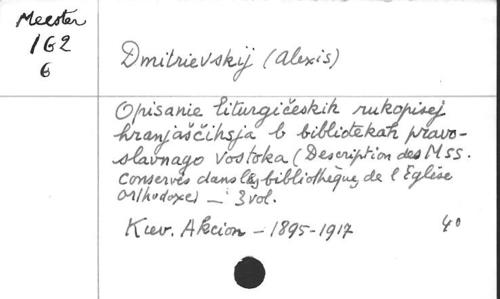 Meester
162
6
Dmitrievskij (Alexis)
Opisanie liturgičeskih rukopisej
hranjaščihsja b bibliotekah pravo-
slavnago vostoka (Description des Mss.
conservés dans les bibliothèques de l'Eglise
orthodoxe) — 3 vol.
Kiev. Akcion — 1895-1917
4°